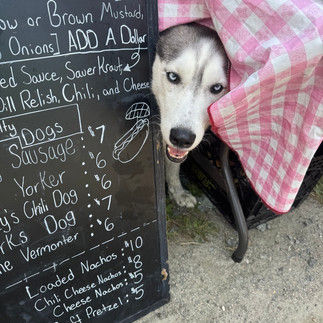 ow or Brown Mustard,
Onions] ADD A Dollar
ed Sauce, SauerKraut
Dill Relish, Chili, and Cheese
ty Dogs
Sausage $7
$6
Yorker $6
y's Chili Dog $7
rk's Dog $6
ne Vermonter
Loaded Nachos: $10
Chili Cheese Nachos: $8
Cheese Nachos: $5
st Pretzel: $5